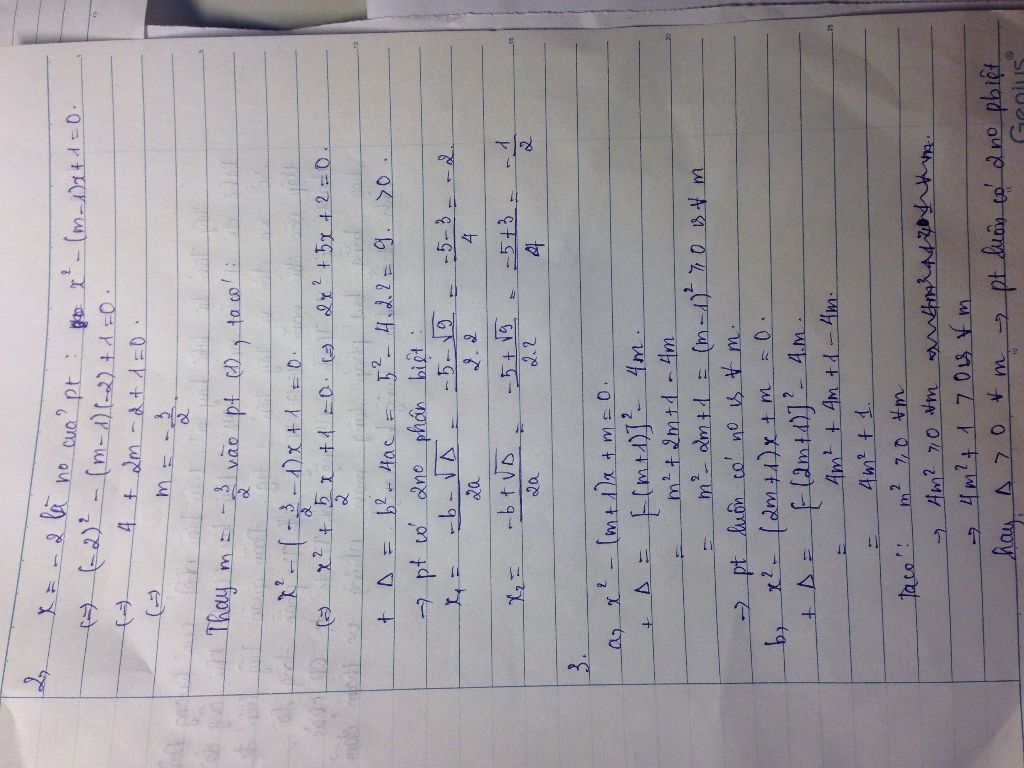 2, x = -2 là no của pt : x² - (m-1)x + 1 = 0.
(=) (-2)² - (m-1)(-2) + 1 = 0.
(=) 4 + 2m - 2 + 1 = 0.
(=) m = -3/2
Thay m = -3/2 vào pt (1), ta có:
x² - (-3/2 - 1)x + 1 = 0.
(=) x² + 5/2 x + 1 = 0. (=) 2x² + 5x + 2 = 0.
+ Δ = b² - 4ac = 5² - 4.2.2 = 9. > 0.
→ pt có 2 no phân biệt:
x₁ = (-b - √Δ)/2a = (-5 - √9)/2.2 = (-5 - 3)/4 = -2.
x₂ = (-b + √Δ)/2a = (-5 + √9)/2.2 = (-5 + 3)/4 = -1/2
3.
a, x² - (m+1)x + m = 0.
+ Δ = [-(m+1)]² - 4m.
= m² + 2m + 1 - 4m
= m² - 2m + 1 = (m-1)² ≥ 0 vs ∀ m
→ pt luôn có no vs ∀ m.
b, x² - (2m+1)x + m = 0.
+ Δ = [-(2m+1)]² - 4.m.
= 4m² + 4m + 1 - 4m.
= 4m² + 1.
Ta có: m² ≥ 0 ∀m
→ 4m² ≥ 0 ∀m
→ 4m² + 1 > 0 vs ∀ m
hay Δ > 0 ∀ m → pt luôn có 2 no pbiệt
Genius